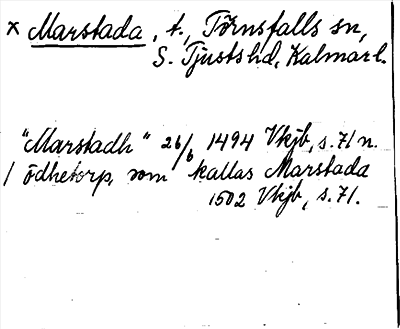 x Marstada, t., Törnsfalls sn,
S. Tjusts hd, Kalmar l.
"Marstadh" 26/6 1494 Vkjb, s. 71 n.
/ ödhetorp, som kallas Marstada
1502 Vkjb, s. 71.